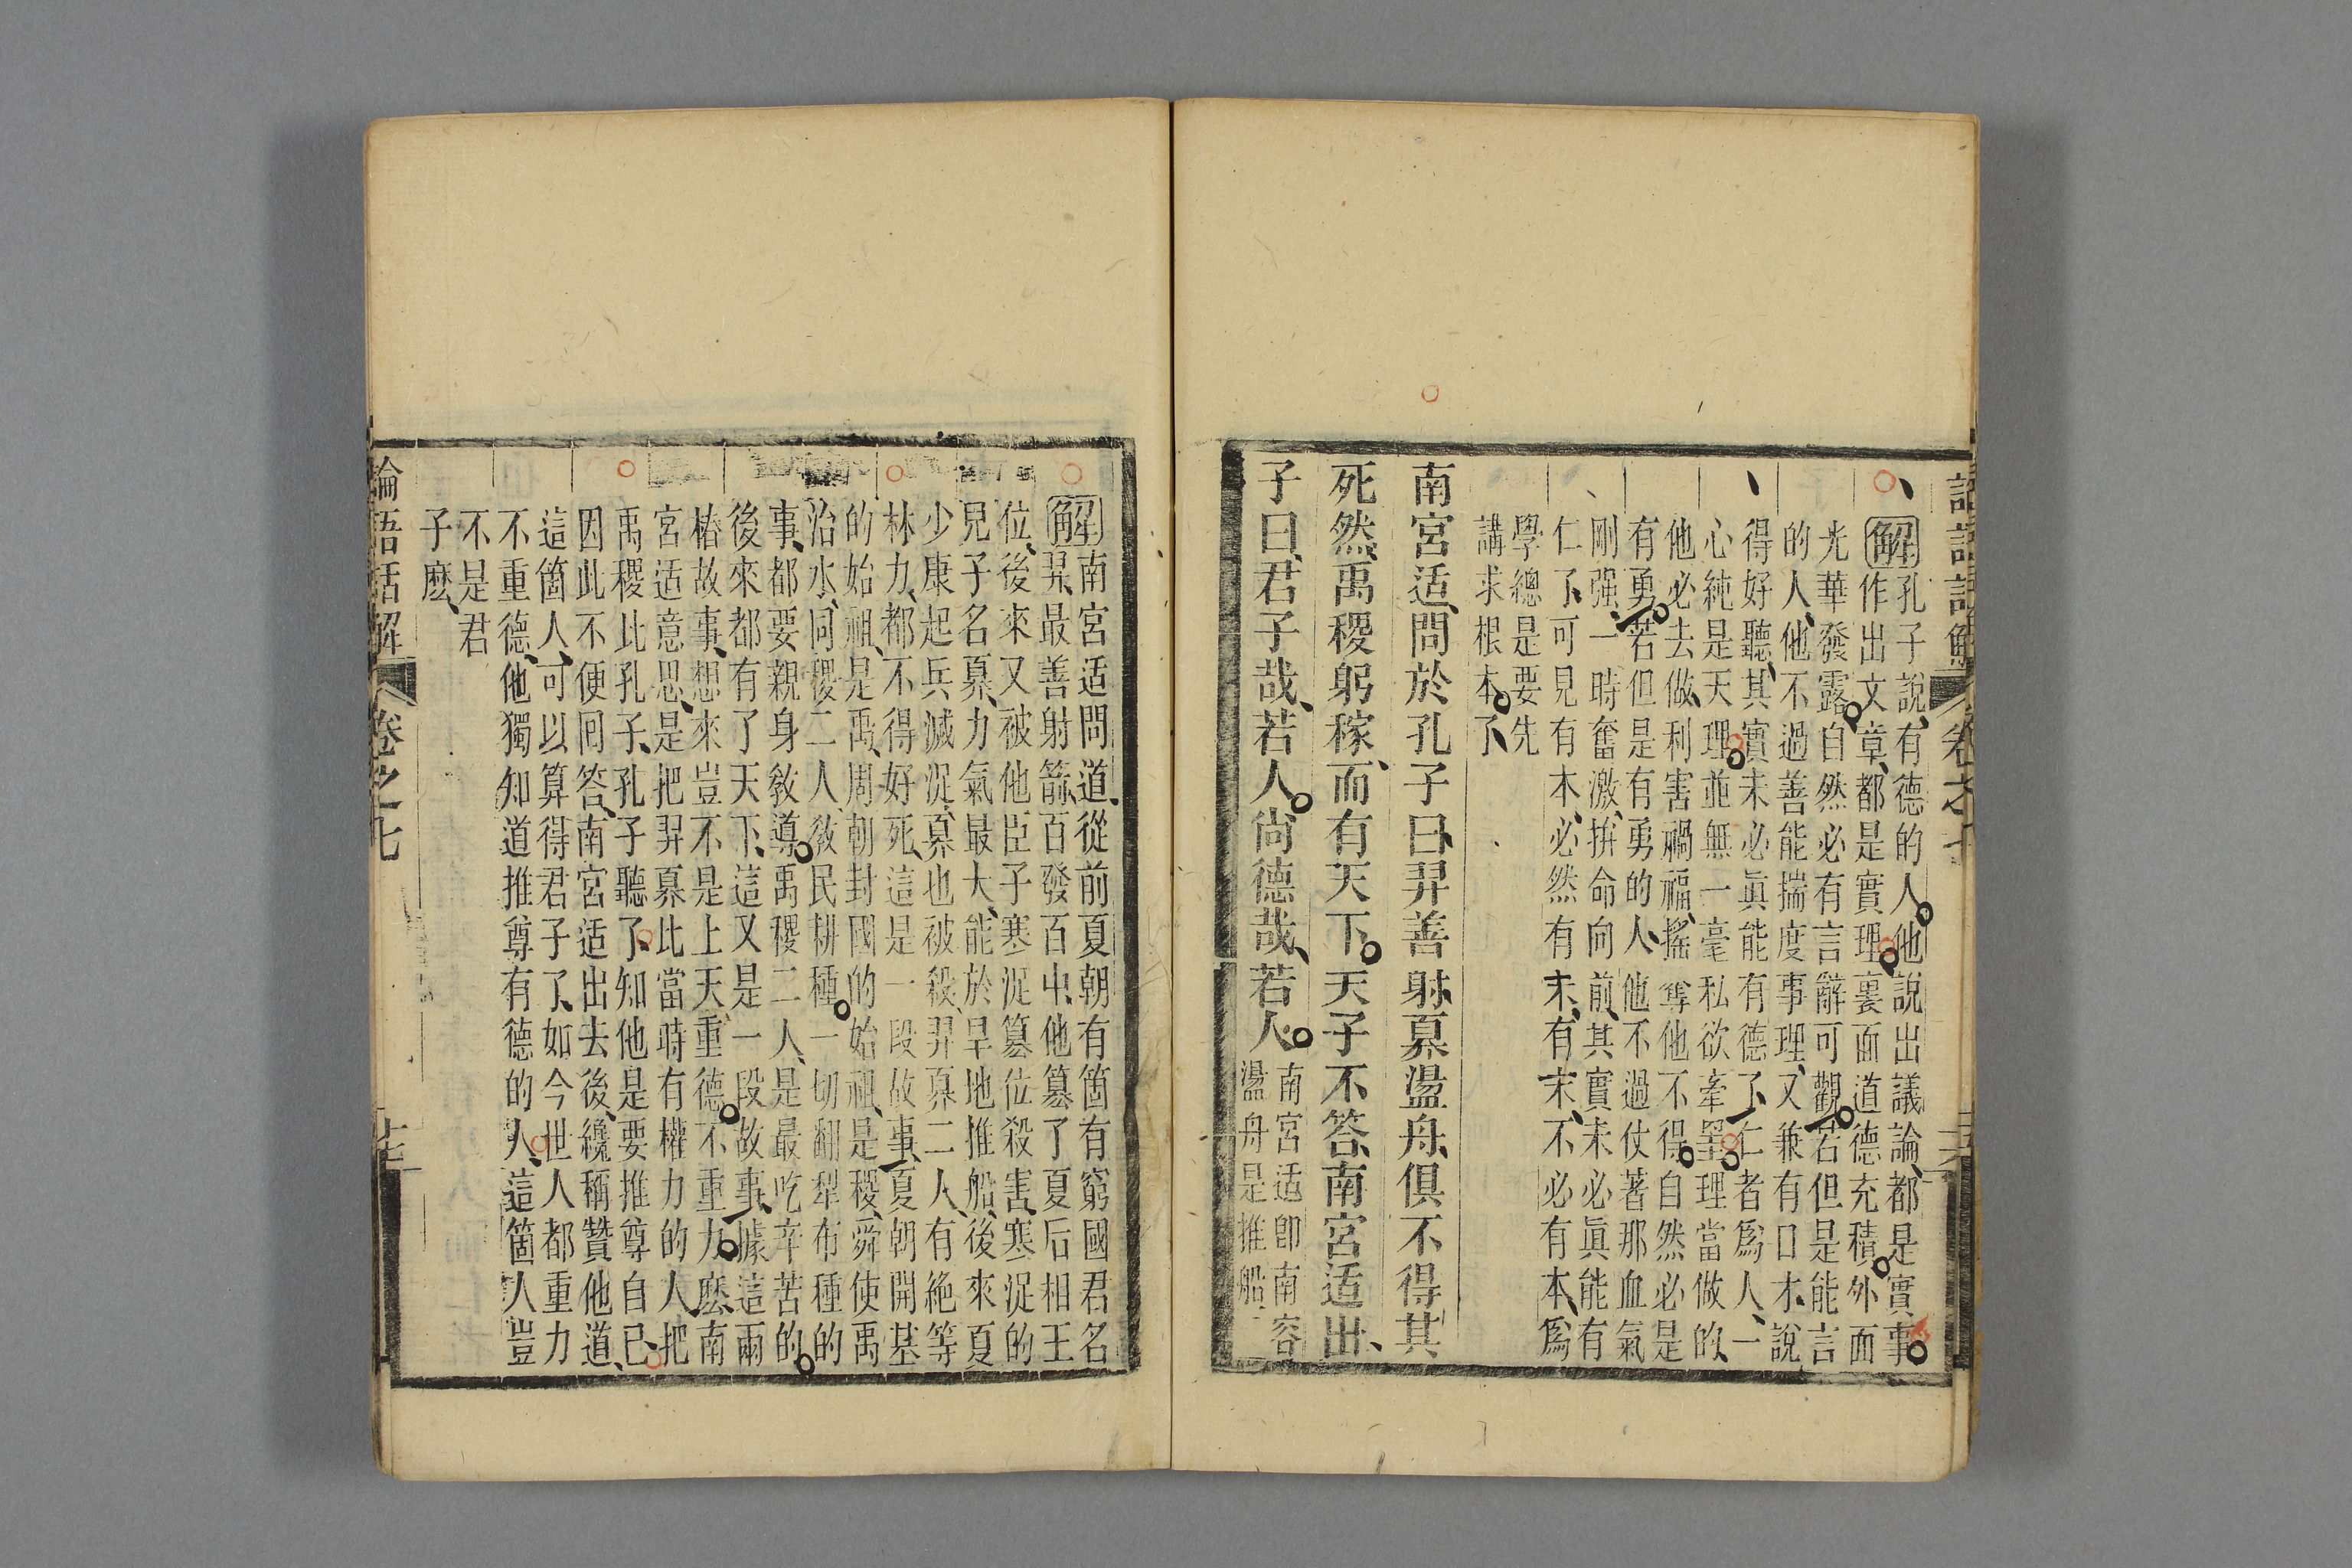 解孔子說、有德的人、他說出議論、都是實事
作出文章、都是實理、裏面道德充積、外面
光華發露、自然必有言辭可觀、若但是能言
的人、他不過善能揣度事理、又兼有口才、說
得好聽、其實未必眞能有德了、仁者爲人、一
心純是天理、並無一毫私欲牽罣、理當做的、
他必去做、利害禍福、搖奪他不得、自然必是
有勇、若但是有勇的人、他不過仗著那血氣
剛强、一時奮激、拚命向前、其實未必眞能有
仁了、可見有本、必然有末、有末、不必有本、爲
學總是要先
講求根本了、
南宮适、問於孔子曰、羿善射、奡盪舟、俱不得其
死然、禹稷躬稼、而有天下、夫子不答、南宮适出、
子曰、君子哉、若人、尚德哉、若人、
南宮适卽南容
盪舟是推船
解南宮适問道、從前夏朝有箇有窮國君名
羿、最善射箭、百發百中、他篡了夏后相王
位、後來又被他臣子寒浞篡位殺害、寒浞的
兒子名奡、力氣最大、能於旱地推船、後來夏
少康起兵滅浞、奡也被殺、羿奡二人、有絶等
林力、都不得好死、這是一段故事、夏朝開基
的始祖、是禹、周朝封國的始祖、是稷、舜使禹
治水、同稷二人、敎民耕種、一切翻犁布種的
事、都要親身敎導、禹稷二人、是最吃辛苦的、
後來都有了天下、這又是一段故事、據這兩
樁故事、想來豈不是上天、重德不重力麽、南
宮适意思、是把羿奡比當時有權力的人、把
禹稷比孔子、孔子聽了、知他是要推尊自己、
因此不便囘答、南宮适出去後、纔稱贊他道、
這箇人、可以算得君子了、如今世人都重力
不重德、他獨知道推尊有德的人、這箇人豈
不是君
子麽、
論語話解 卷之七